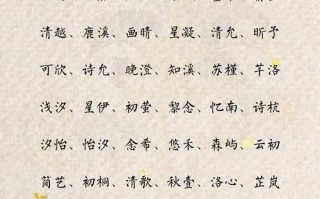 清越、鹿溪、画晴、星凝、清允、昕予
可欣、诗允、晚澄、知溪、苏槿、芊洛
浅汐、星伊、初萤、黎念、忆南、诗杭
汐怡、怡汐、念希、悠禾、森屿、云初
简艺、初桐、清歌、秋壹、洛心、芷岚